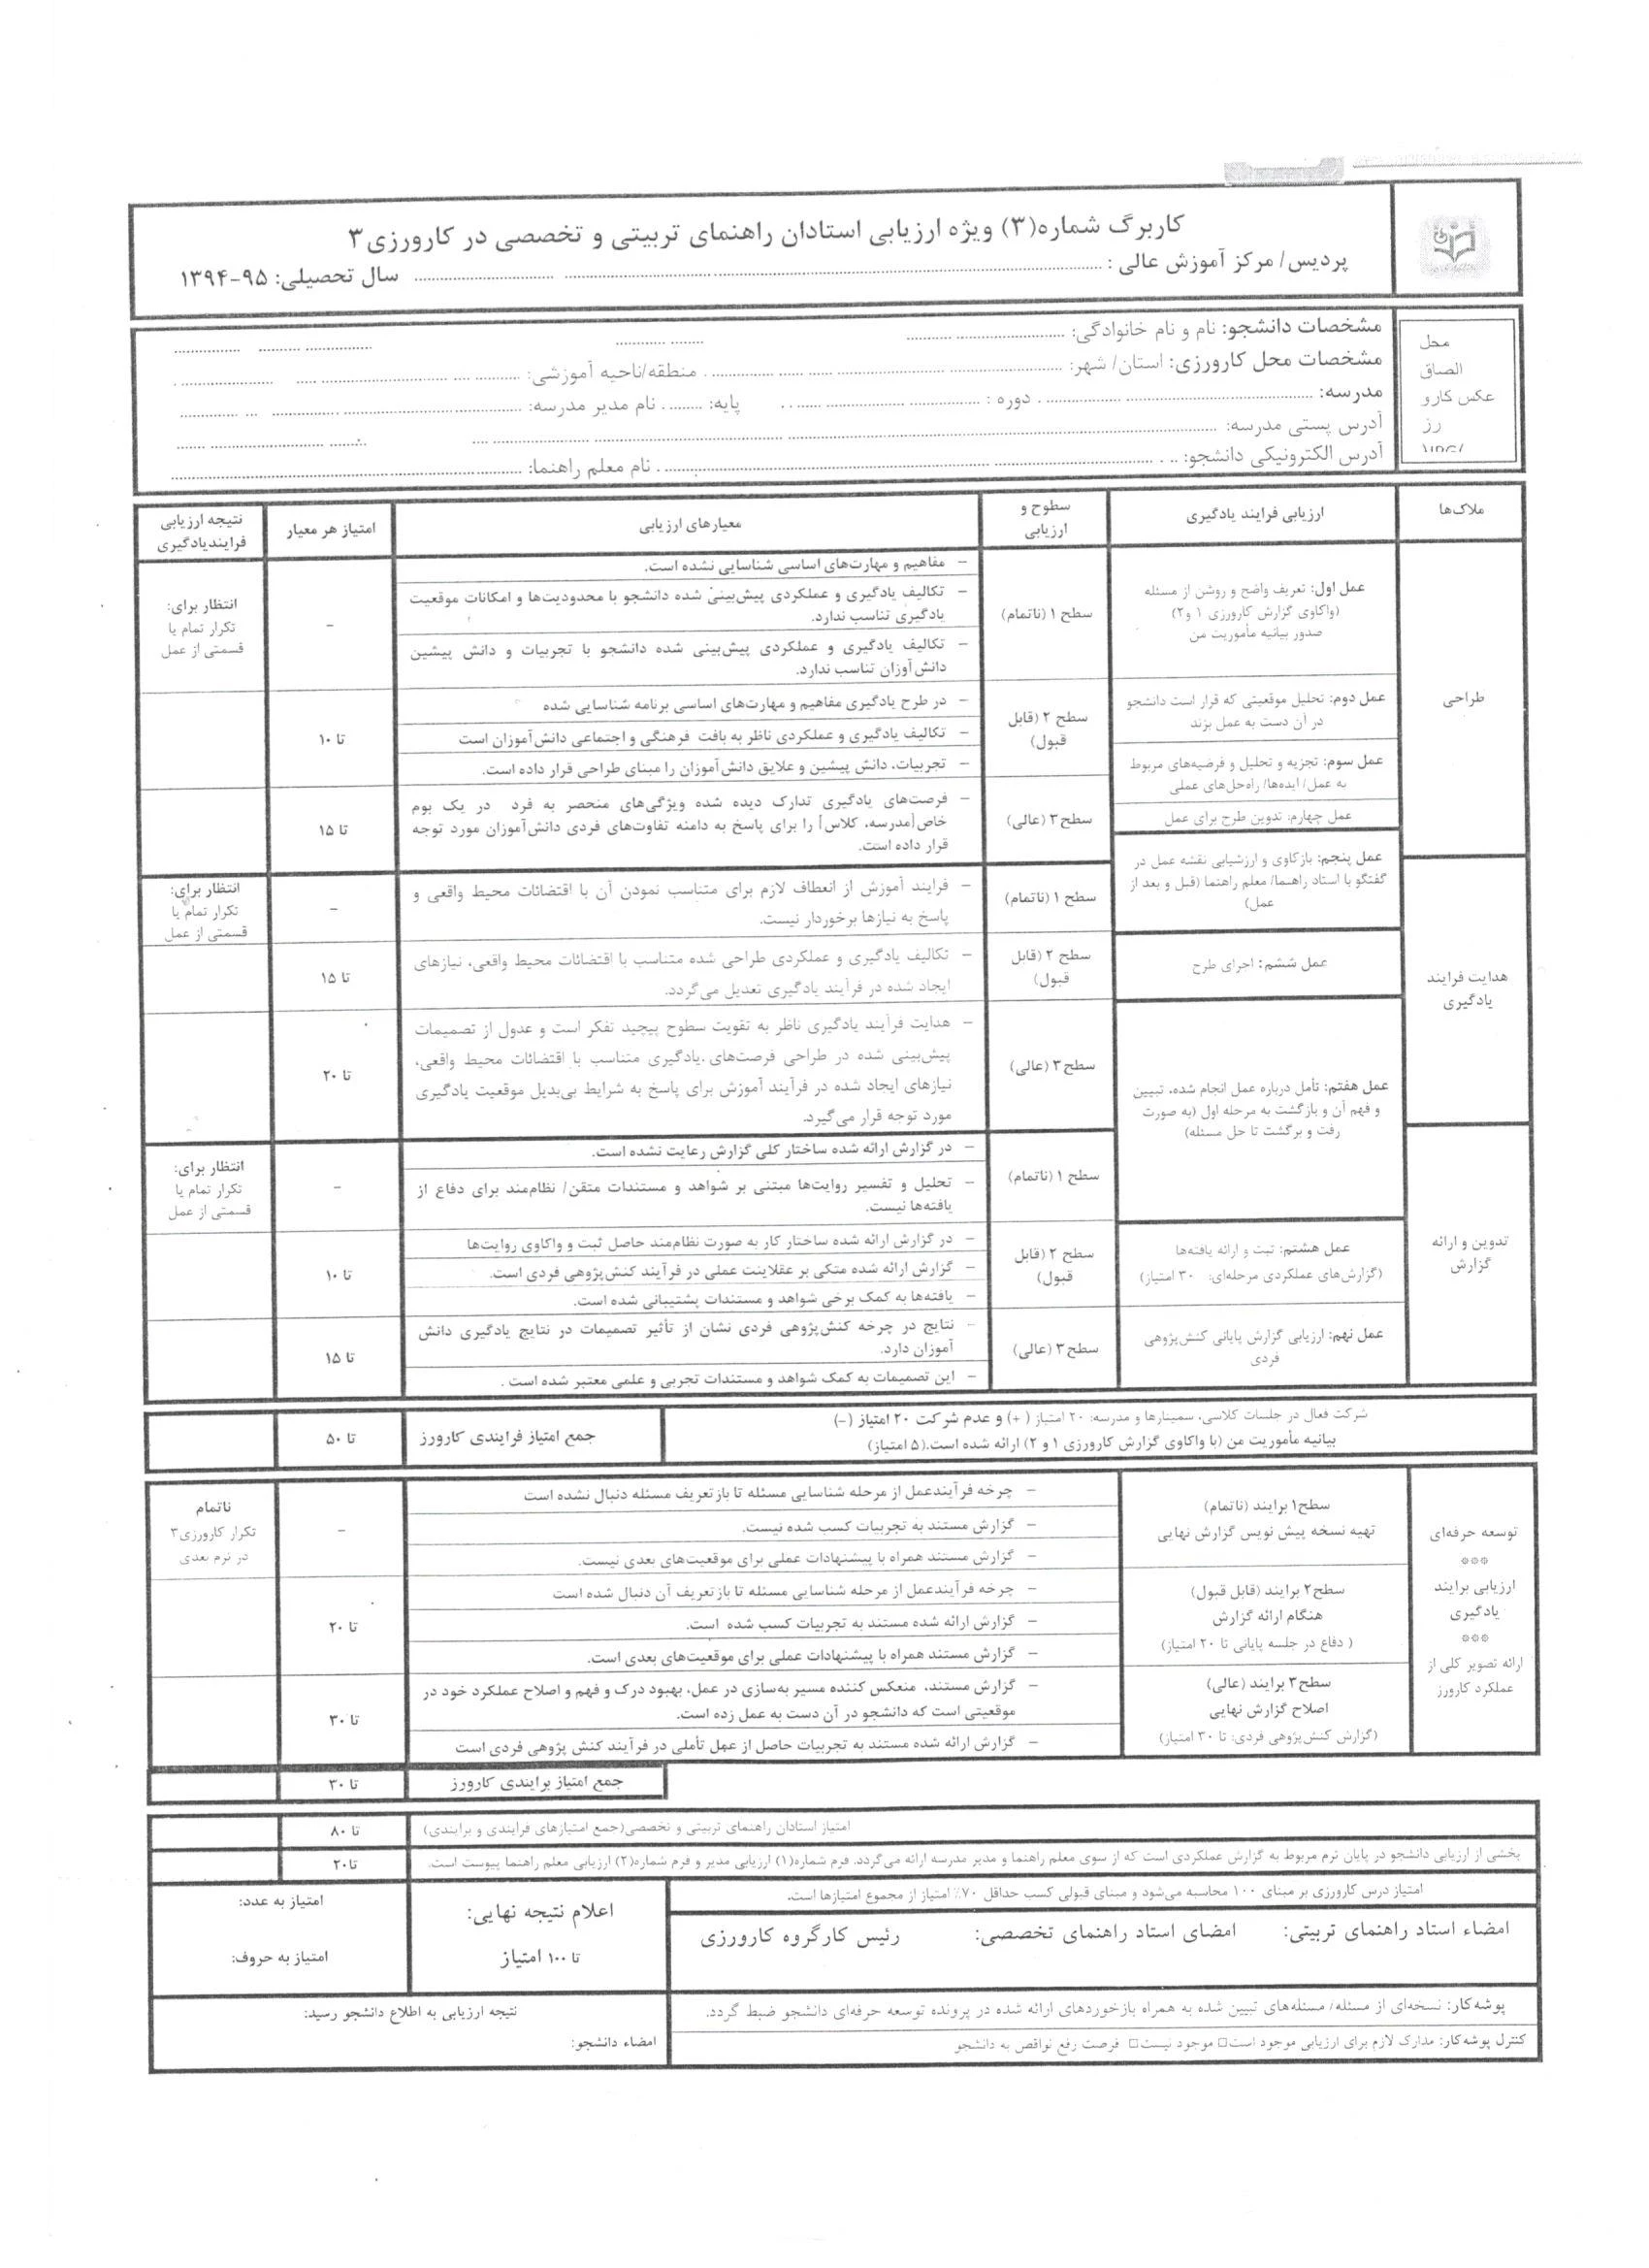 کاربرگ شماره(۳) ویژه ارزیابی استادان راهنمای تربیتی و تخصصی در کارورزی۳
پردیس/ مرکز آموزش عالی :
سال تحصیلی: ۹۵-۱۳۹۴
محل
الصاق
عکس کارو
رز
مشخصات دانشجو: نام و نام خانوادگی:
مشخصات محل کارورزی: استان/ شهر: منطقه/ناحیه آموزشی:
مدرسه: دوره : پایه: نام مدیر مدرسه:
آدرس پستی مدرسه:
آدرس الکترونیکی دانشجو: نام معلم راهنما:
ملاک‌ها
ارزیابی فرایند یادگیری
سطوح و
ارزیابی
معیارهای ارزیابی
امتیاز هر معیار
نتیجه ارزیابی
فرایندیادگیری
طراحی
عمل اول: تعریف واضح و روشن از مسئله
(واکاوی گزارش کارورزی ۱ و۲)
صدور بیانیه مأموریت من
سطح ۱ (ناتمام)
– مفاهیم و مهارت‌های اساسی شناسایی نشده است.
– تکالیف یادگیری و عملکردی پیش‌بینی شده دانشجو با محدودیت‌ها و امکانات موقعیت
یادگیری تناسب ندارد.
– تکالیف یادگیری و عملکردی پیش‌بینی شده دانشجو با تجربیات و دانش پیشین
دانش‌آوزان تناسب ندارد.
–
انتظار برای:
تکرار تمام یا
قسمتی از عمل
عمل دوم: تحلیل موقعیتی که قرار است دانشجو
در آن دست به عمل بزند
عمل سوم: تجزیه و تحلیل و فرضیه‌های مربوط
به عمل/ ایده‌ها/ راه‌حل‌های عملی
سطح ۲ (قابل
قبول)
– در طرح یادگیری مفاهیم و مهارت‌های اساسی برنامه شناسایی شده
– تکالیف یادگیری و عملکردی ناظر به بافت فرهنگی و اجتماعی دانش‌آموزان است
– تجربیات، دانش پیشین و علایق دانش‌آموزان را مبنای طراحی قرار داده است.
تا ۱۰
عمل چهارم: تدوین طرح برای عمل
سطح۳ (عالی)
– فرصت‌های یادگیری تدارک دیده شده ویژگی‌های منحصر به فرد در یک بوم
خاص[مدرسه، کلاس] را برای پاسخ به دامنه تفاوت‌های فردی دانش‌آموزان مورد توجه
قرار داده است.
تا ۱۵
هدایت فرایند
یادگیری
عمل پنجم: بازکاوی و ارزشیابی نقشه عمل در
گفتگو با استاد راهنما/ معلم راهنما (قبل و بعد از
عمل)
سطح ۱ (ناتمام)
– فرایند آموزش از انعطاف لازم برای متناسب نمودن آن با اقتضائات محیط واقعی و
پاسخ به نیازها برخوردار نیست.
–
انتظار برای:
تکرار تمام یا
قسمتی از عمل
عمل ششم: اجرای طرح
سطح ۲ (قابل
قبول)
– تکالیف یادگیری و عملکردی طراحی شده متناسب با اقتضائات محیط واقعی، نیازهای
ایجاد شده در فرآیند یادگیری تعدیل می‌گردد.
تا ۱۵
عمل هفتم: تأمل درباره عمل انجام شده، تبیین
و فهم آن و بازگشت به مرحله اول (به صورت
رفت و برگشت تا حل مسئله)
سطح۳ (عالی)
– هدایت فرآیند یادگیری ناظر به تقویت سطوح پیچید تفکر است و عدول از تصمیمات
پیش‌بینی شده در طراحی فرصت‌های یادگیری متناسب با اقتضائات محیط واقعی،
نیازهای ایجاد شده در فرآیند آموزش برای پاسخ به شرایط بی‌بدیل موقعیت یادگیری
مورد توجه قرار می‌گیرد.
تا ۲۰
تدوین و ارائه
گزارش
سطح ۱ (ناتمام)
– در گزارش ارائه شده ساختار کلی گزارش رعایت نشده است.
– تحلیل و تفسیر روایت‌ها مبتنی بر شواهد و مستندات متقن/ نظام‌مند برای دفاع از
یافته‌ها نیست.
–
انتظار برای:
تکرار تمام یا
قسمتی از عمل
عمل هشتم: ثبت و ارائه یافته‌ها
(گزارش‌های عملکردی مرحله‌ای: ۳۰ امتیاز)
سطح ۲ (قابل
قبول)
– در گزارش ارائه شده ساختار کار به صورت نظام‌مند حاصل ثبت و واکاوی روایت‌ها
– گزارش ارائه شده متکی بر عقلانیت عملی در فرآیند کنش‌پژوهی فردی است.
– یافته‌ها به کمک برخی شواهد و مستندات پشتیبانی شده است.
تا ۱۰
عمل نهم: ارزیابی گزارش پایانی کنش‌پژوهی
فردی
سطح۳ (عالی)
– نتایج در چرخه کنش‌پژوهی فردی نشان از تأثیر تصمیمات در نتایج یادگیری دانش
آموزان دارد.
– این تصمیمات به کمک شواهد و مستندات تجربی و علمی معتبر شده است .
تا ۱۵
شرکت فعال در جلسات کلاسی، سمینارها و مدرسه: ۲۰ امتیاز (+) و عدم شرکت ۲۰ امتیاز (–)
بیانیه مأموریت من (با واکاوی گزارش کارورزی ۱ و ۲) ارائه شده است.(۵ امتیاز)
جمع امتیاز فرایندی کارورز
تا ۵۰
توسعه حرفه‌ای
***
ارزیابی برایند
یادگیری
***
ارائه تصویر کلی از
عملکرد کارورز
سطح۱ برایند (ناتمام)
تهیه نسخه پیش نویس گزارش نهایی
– چرخه فرآیندعمل از مرحله شناسایی مسئله تا بازتعریف مسئله دنبال نشده است
– گزارش مستند به تجربیات کسب شده نیست.
– گزارش مستند همراه با پیشنهادات عملی برای موقعیت‌های بعدی نیست.
–
ناتمام
تکرار کارورزی۳
در ترم بعدی
سطح۲ برایند (قابل قبول)
هنگام ارائه گزارش
( دفاع در جلسه پایانی تا ۲۰ امتیاز)
– چرخه فرآیندعمل از مرحله شناسایی مسئله تا بازتعریف آن دنبال شده است
– گزارش ارائه شده مستند به تجربیات کسب شده است.
– گزارش مستند همراه با پیشنهادات عملی برای موقعیت‌های بعدی است.
تا ۲۰
سطح۳ برایند (عالی)
اصلاح گزارش نهایی
(گزارش کنش‌پژوهی فردی: تا ۳۰ امتیاز)
– گزارش مستند، منعکس کننده مسیر به‌سازی در عمل، بهبود درک و فهم و اصلاح عملکرد خود در
موقعیتی است که دانشجو در آن دست به عمل زده است.
– گزارش ارائه شده مستند به تجربیات حاصل از عمل تأملی در فرآیند کنش پژوهی فردی است
تا ۳۰
جمع امتیاز برایندی کارورز
تا ۳۰
امتیاز استادان راهنمای تربیتی و تخصصی(جمع امتیازهای فرایندی و برایندی)
تا ۸۰
بخشی از ارزیابی دانشجو در پایان ترم مربوط به گزارش عملکردی است که از سوی معلم راهنما و مدیر مدرسه ارائه می‌گردد. فرم شماره(۱) ارزیابی مدیر و فرم شماره(۲) ارزیابی معلم راهنما پیوست است.
تا۲۰
امتیاز درس کارورزی بر مبنای ۱۰۰ محاسبه می‌شود و مبنای قبولی کسب حداقل ۷۰٪ امتیاز از مجموع امتیازها است.
امضاء استاد راهنمای تربیتی: امضای استاد راهنمای تخصصی: رئیس کارگروه کارورزی
اعلام نتیجه نهایی:
تا ۱۰۰ امتیاز
امتیاز به عدد:
امتیاز به حروف:
پوشه‌کار: نسخه‌ای از مسئله/ مسئله‌های تبیین شده به همراه بازخوردهای ارائه شده در پرونده توسعه حرفه‌ای دانشجو ضبط گردد.
کنترل پوشه‌کار: مدارک لازم برای ارزیابی موجود است□ موجود نیست□ فرصت رفع نواقص به دانشجو
نتیجه ارزیابی به اطلاع دانشجو رسید:
امضاء دانشجو: